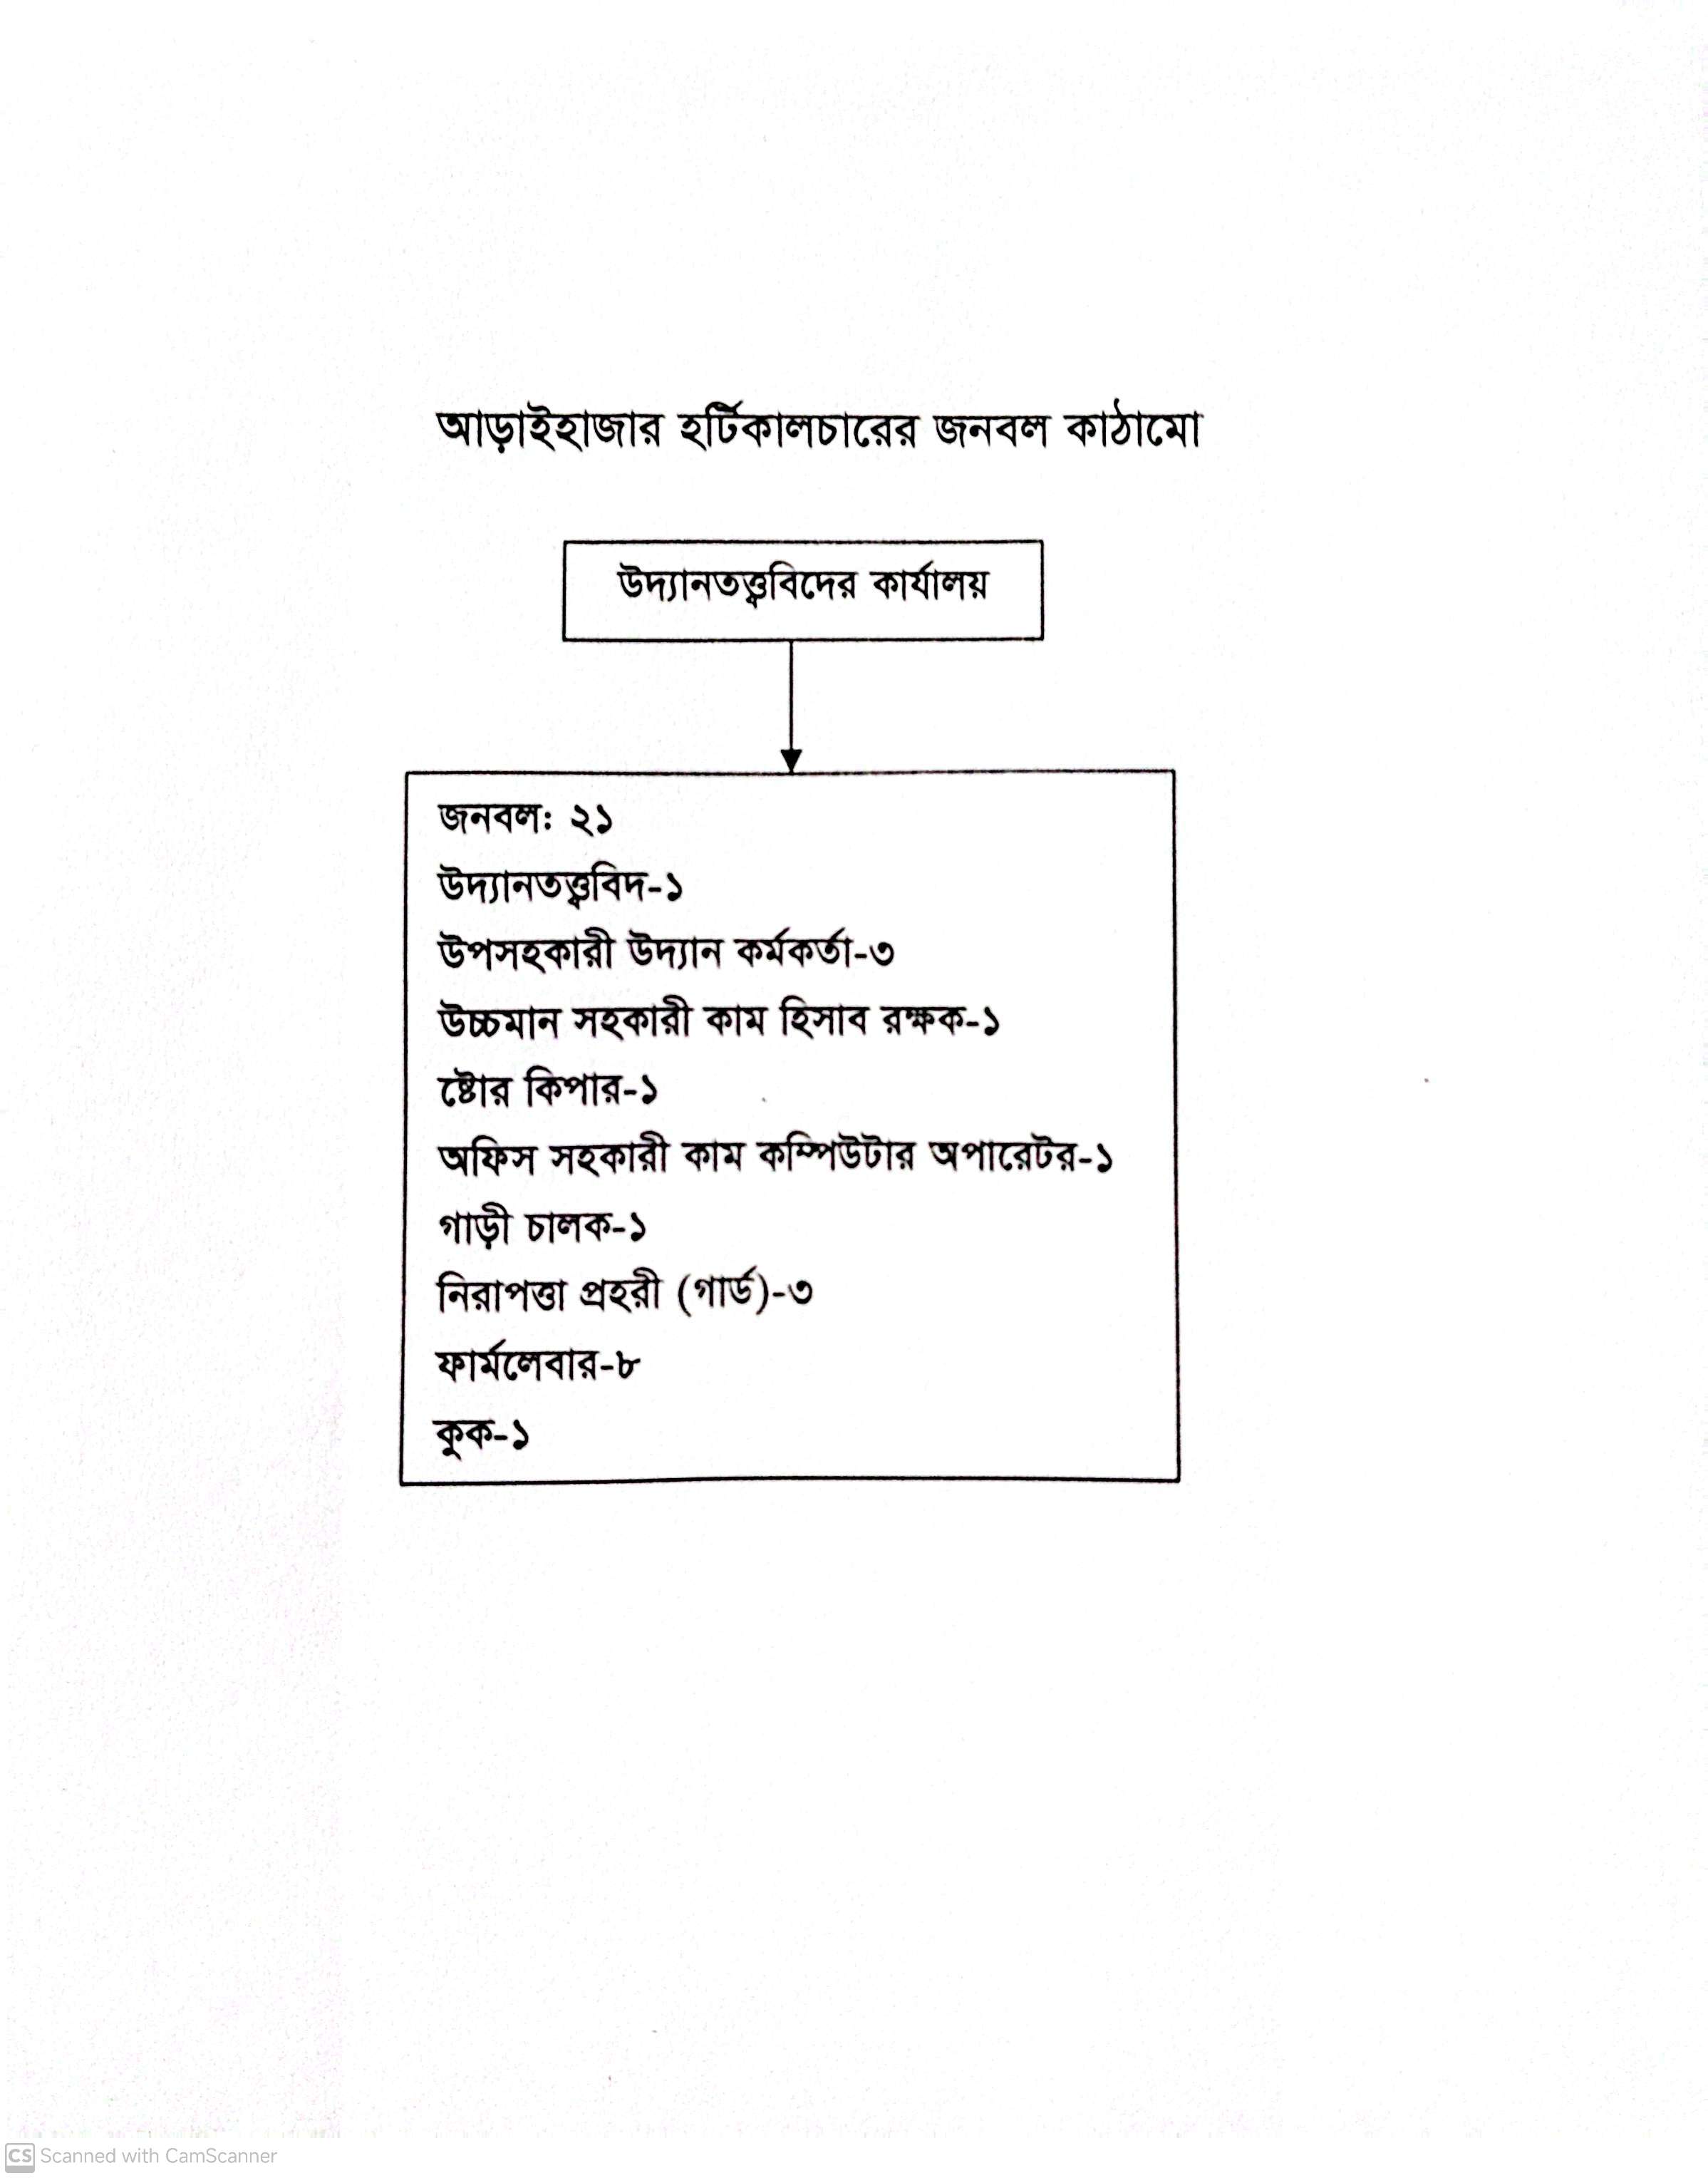 আড়াইহাজার হর্টিকালচারের জনবল কাঠামো
উদ্যানতত্ত্ববিদের কার্যালয়
জনবলঃ ২১
উদ্যানতত্ত্ববিদ-১
উপসহকারী উদ্যান কর্মকর্তা-৩
উচ্চমান সহকারী কাম হিসাব রক্ষক-১
ষ্টোর কিপার-১
অফিস সহকারী কাম কম্পিউটার অপারেটর-১
গাড়ী চালক-১
নিরাপত্তা প্রহরী (গার্ড)-৩
ফার্মলেবার-৮
কুক-১
CS Scanned with CamScanner